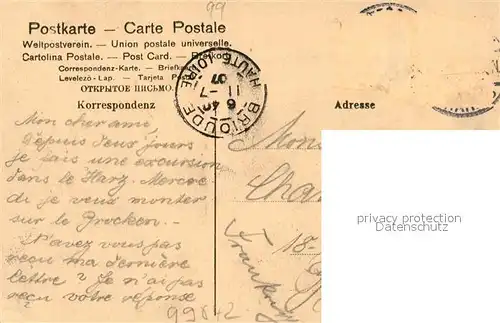 99
Postkarte — Carte Postale
Weltpostverein. — Union postale universelle.
Cartolina Postale. — Post Card. — Brefkort
Correspondenz-Karte. — Briefkaart
Levelező-Lap. — Tarjeta Postal
ОТКРЫТОЕ ПИСЬМО.
Korrespondenz
Adresse
BRIOUDE
HAUTE-LOIRE
6 40
11 -7
07
Mon cher ami,
Depuis deux jours
je fais une excursion
dans le Harz. Mercre
di je veux monter
sur le Brocken. —
N'avez vous pas
reçu ma dernière
lettre? Je n'ai pas
reçu votre réponse
Mons
Cha
18-
Frankr
privacy protection
bartko-reher.de